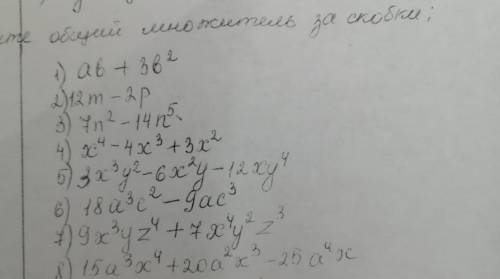 ите общий множитель за скобки;
1) ab + 3b²
2) 12m - 2p
3) 7n² - 14n⁵
4) x⁴ - 4x³ + 3x²
5) 3x³y² - 6x²y - 12xy⁴
6) 18a³c² - 9ac³
7) 9x³yz⁴ + 7x⁴y²z³
8) 15a³x⁴ + 20a²x³ - 25a⁴x